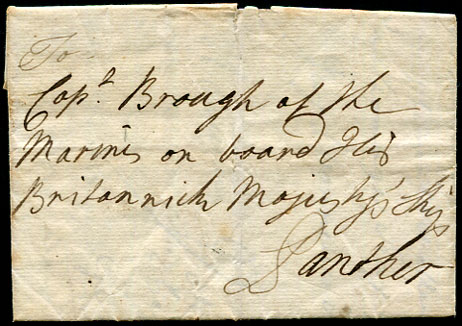 To
Capt. Brough of the
Marines on board His
Britannick Majesty's Ship
Panther